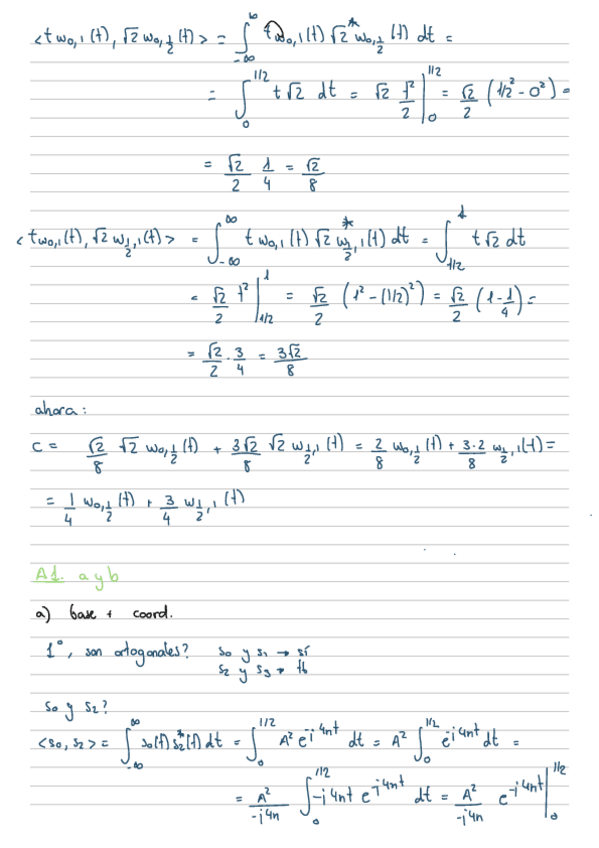 <t w₀,₁(t), √2 w₀,½(t)> = ∫_{-∞}^{∞} t w₀,₁(t) √2 w*₀,½(t) dt =
= ∫₀^{1/2} t√2 dt = √2 t²/2 |₀^{1/2} = √2/2 (1/2² - 0²) =
= √2/2 1/4 = √2/8
<t w₀,₁(t), √2 w½,₁(t)> = ∫_{-∞}^{∞} t w₀,₁(t) √2 w*½,₁(t) dt = ∫_{1/2}^{1} t√2 dt
= √2/2 t² |_{1/2}^{1} = √2/2 (1² - (1/2)²) = √2/2 (1 - 1/4) =
= √2/2 · 3/4 = 3√2/8
ahora:
c = √2/8 √2 w₀,½(t) + 3√2/8 √2 w½,₁(t) = 2/8 w₀,½(t) + 3·2/8 w½,₁(t) =
= 1/4 w₀,½(t) + 3/4 w½,₁(t)
A1. a y b
a) base + coord.
1°, son ortogonales? s₀ y s₁ → sí
s₂ y s₃ → tb
s₀ y s₂?
<s₀, s₂> = ∫_{-∞}^{∞} s₀(t) s₂*(t) dt = ∫₀^{1/2} A² e^{-j4πt} dt = A² ∫₀^{1/2} e^{-j4πt} dt =
= A²/-j4π ∫₀^{1/2} -j4πt e^{-j4πt} dt = A²/-j4π e^{-j4πt} |₀^{1/2}